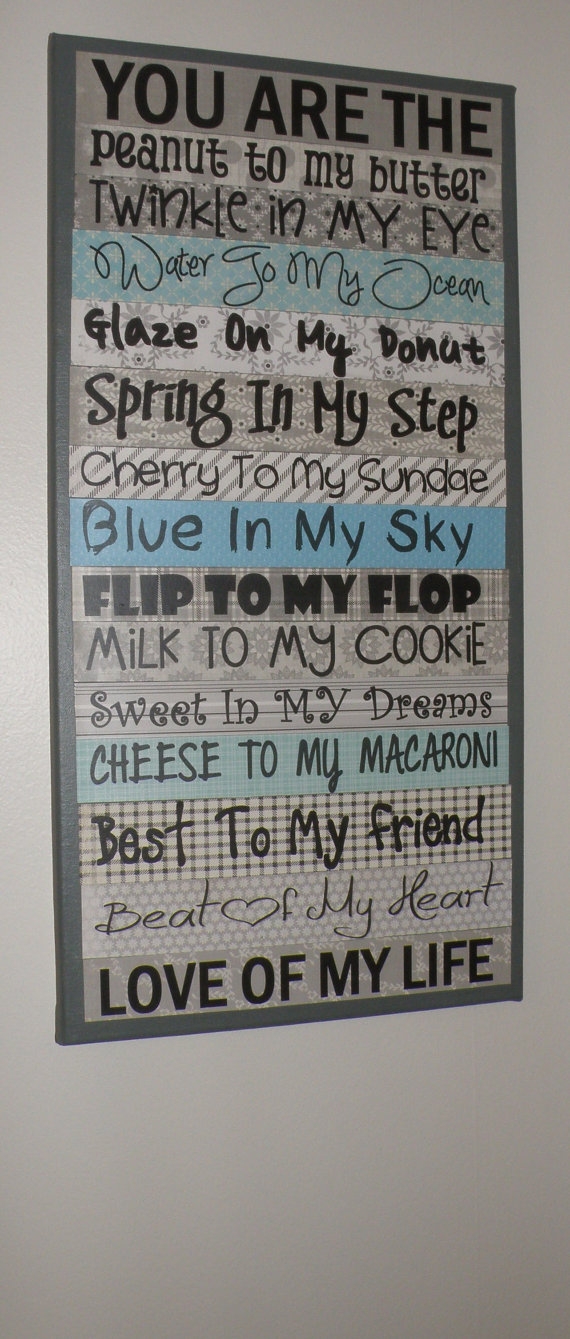 YOU ARE THE
Peanut to my butter
TWINKLE in MY EYE
Water To My Ocean
Glaze On My Donut
Spring In My Step
Cherry To My Sundae
Blue In My Sky
FLIP TO MY FLOP
MiLK TO MY COOKiE
Sweet In MY Dreams
CHEESE TO MY MACARONI
Best To My friend
Beat Of My Heart
LOVE OF MY LIFE